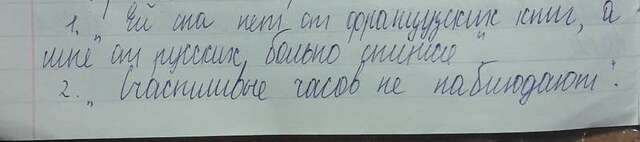 1. "Ей сна нет от французских книг, а
мне от русских больно спится"
2. "Счастливые часов не наблюдают".